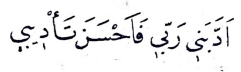 اَدَّبَنٖي رَبّٖي فَاَحْسَنَ تَأْدٖيبٖي